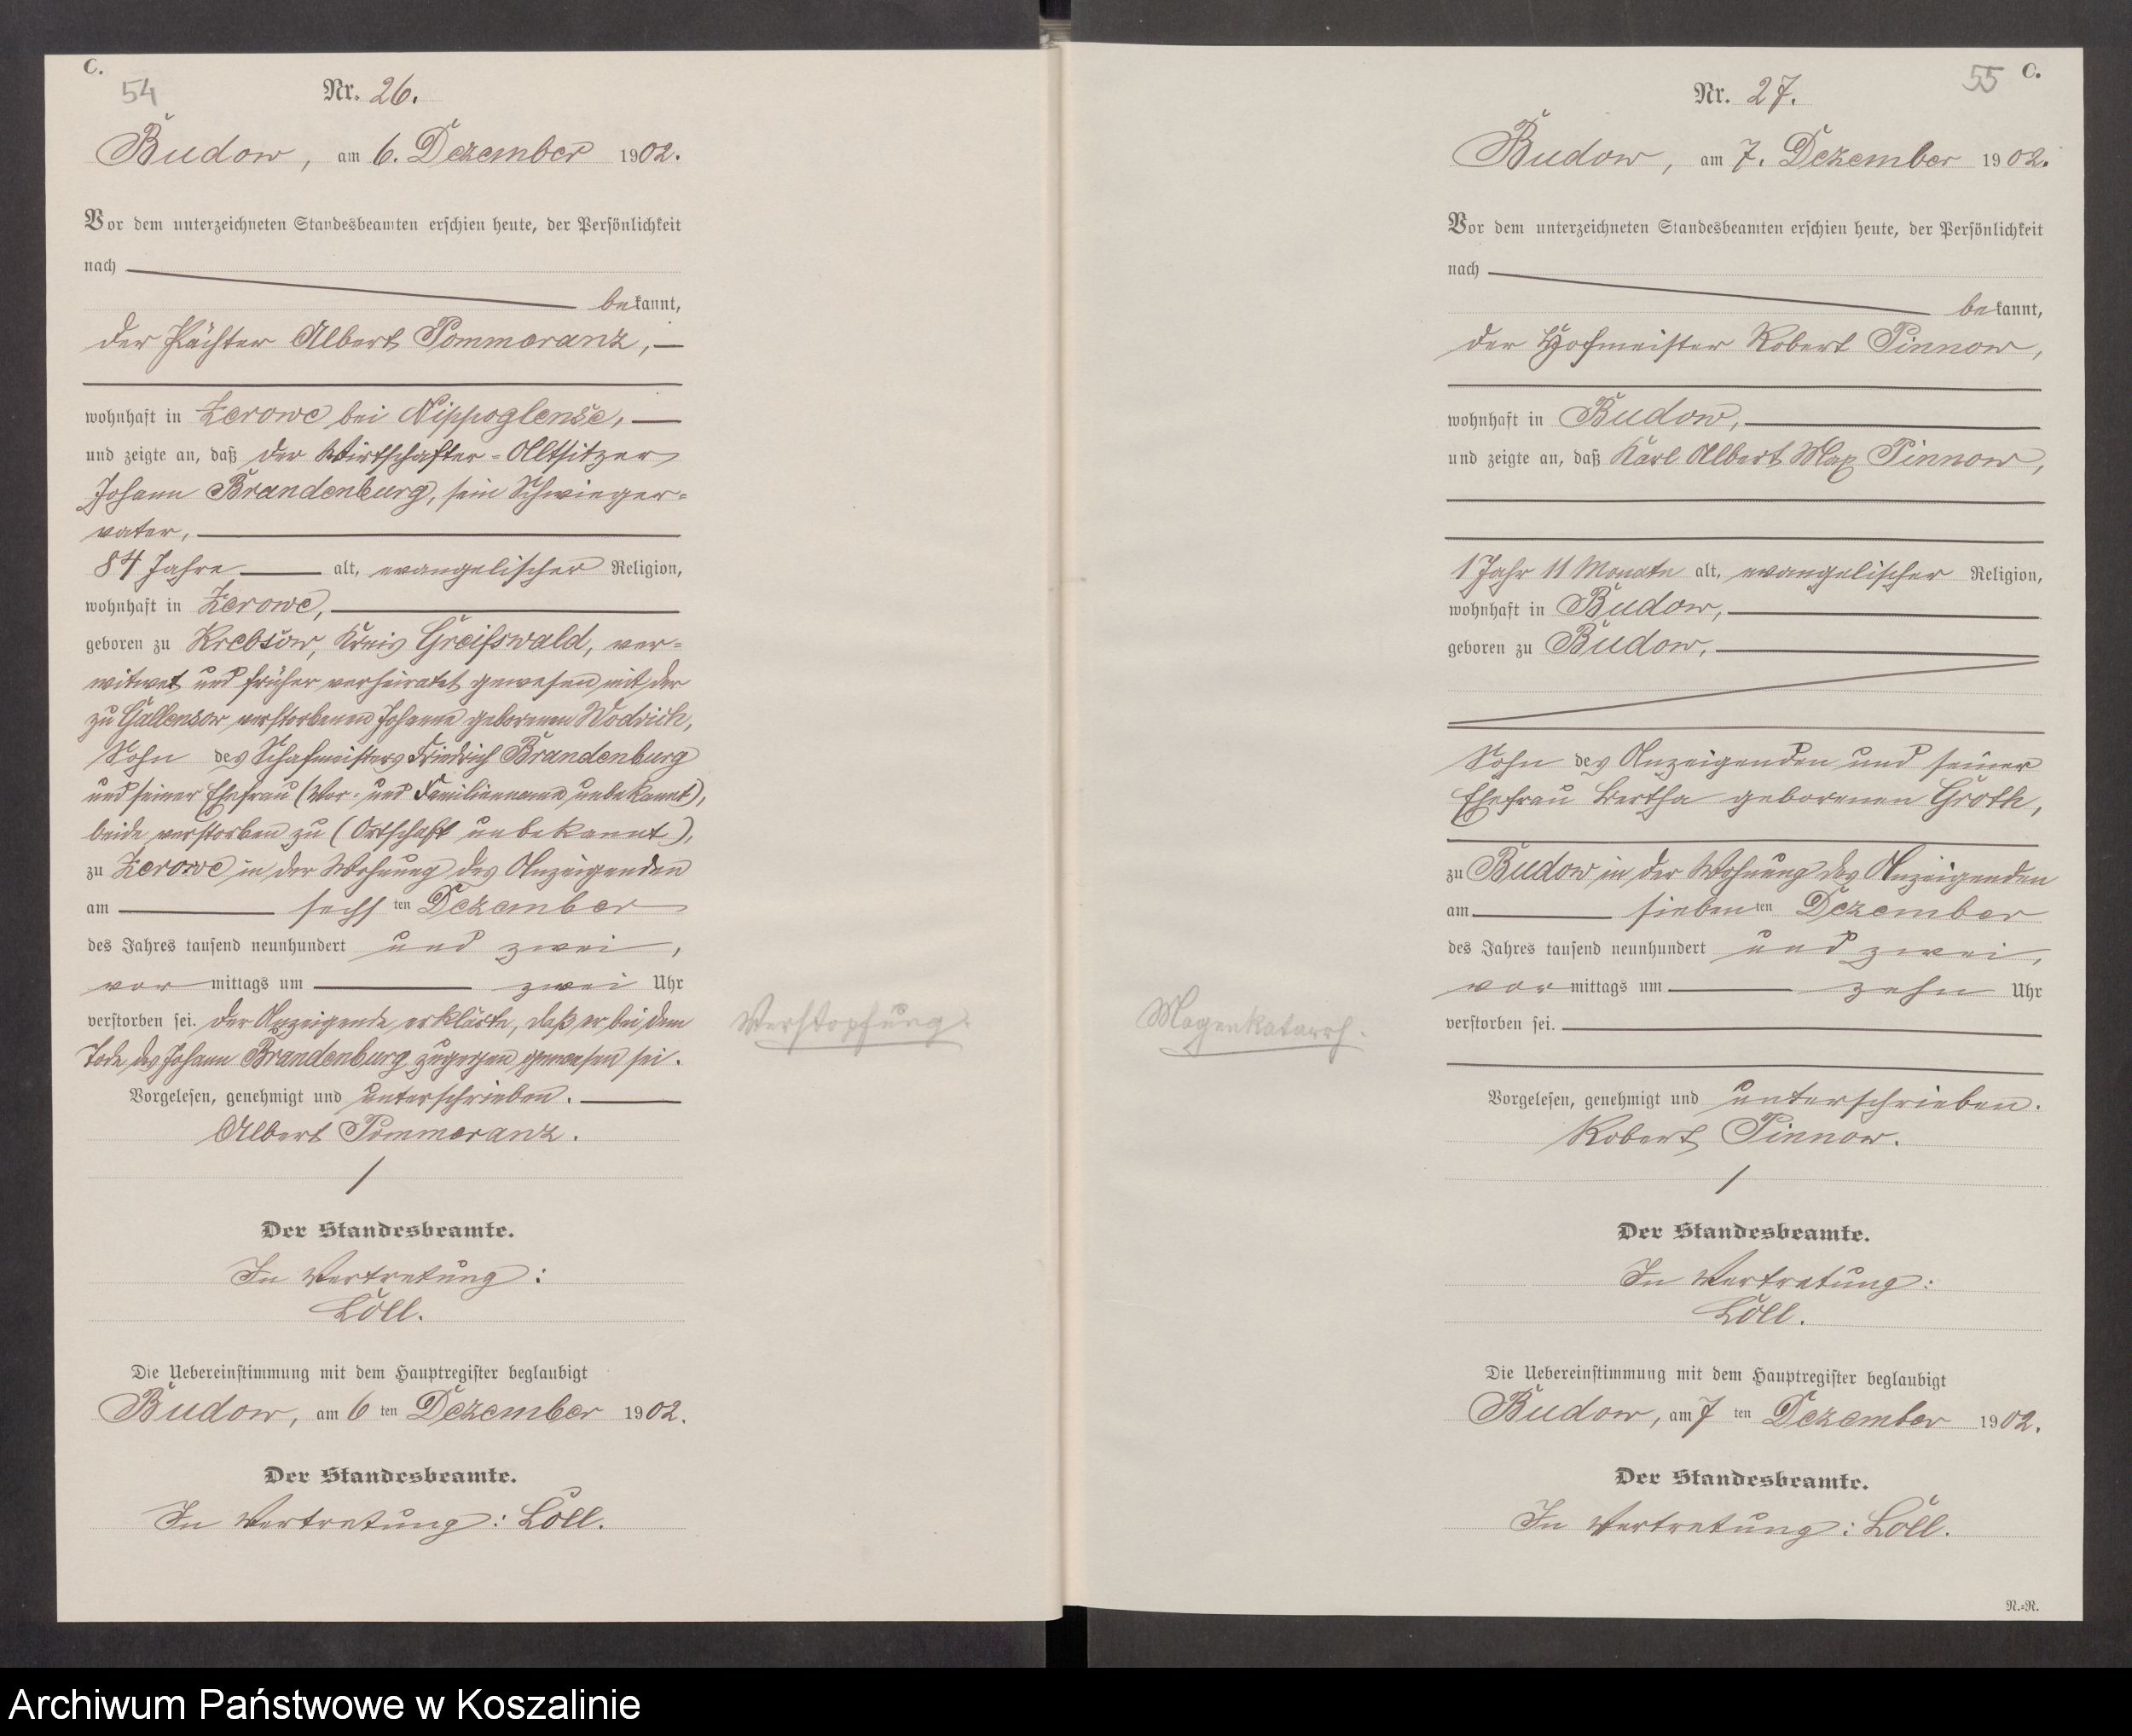 C.
54
Nr. 26.
Budow, am 6. Dezember 1902.
Vor dem unterzeichneten Standesbeamten erschien heute, der Persönlichkeit
nach
bekannt,
der Pächter Albert Pommeranz,
wohnhaft in Zerowe bei Nippoglense,
und zeigte an, daß der Wirtschafter-Altsitzer
Johann Brandenburg, sein Schwieger-
vater,
84 Jahre alt, evangelischer Religion,
wohnhaft in Zerowe,
geboren zu Krebsow, Kreis Greifswald, ver-
witwet und früher verheiratet gewesen mit der
zu Gallensow verstorbenen Johanne geborenen Wodrich,
Sohn des Schafmeisters Friedrich Brandenburg
und seiner Ehefrau (Vor- und Familienname unbekannt),
beide verstorben zu (Ortschaft unbekannt),
zu Zerowe in der Wohnung des Anzeigenden
am sechsten Dezember
des Jahres tausend neunhundert und zwei,
vormittags um zwei Uhr
verstorben sei. Der Anzeigende erklärte, daß er bei dem
Tode des Johann Brandenburg zugegen gewesen sei.
Vorgelesen, genehmigt und unterschrieben.
Albert Pommeranz.
Der Standesbeamte.
In Vertretung:
Löll.
Die Uebereinstimmung mit dem Hauptregister beglaubigt
Budow, am 6ten Dezember 1902.
Der Standesbeamte.
In Vertretung: Löll.
Verstopfung.
55
C.
Nr. 27.
Budow, am 7. Dezember 1902.
Vor dem unterzeichneten Standesbeamten erschien heute, der Persönlichkeit
nach
bekannt,
der Hofmeister Robert Pinnow,
wohnhaft in Budow,
und zeigte an, daß Karl Albert Max Pinnow,
1 Jahr 11 Monate alt, evangelischer Religion,
wohnhaft in Budow,
geboren zu Budow,
Sohn des Anzeigenden und seiner
Ehefrau Bertha geborenen Groth,
zu Budow in der Wohnung des Anzeigenden
am siebenten Dezember
des Jahres tausend neunhundert und zwei,
vormittags um zehn Uhr
verstorben sei.
Magenkatarrh.
Vorgelesen, genehmigt und unterschrieben.
Robert Pinnow.
Der Standesbeamte.
In Vertretung:
Löll.
Die Uebereinstimmung mit dem Hauptregister beglaubigt
Budow, am 7ten Dezember 1902.
Der Standesbeamte.
In Vertretung: Löll.
N.=N.
Archiwum Państwowe w Koszalinie